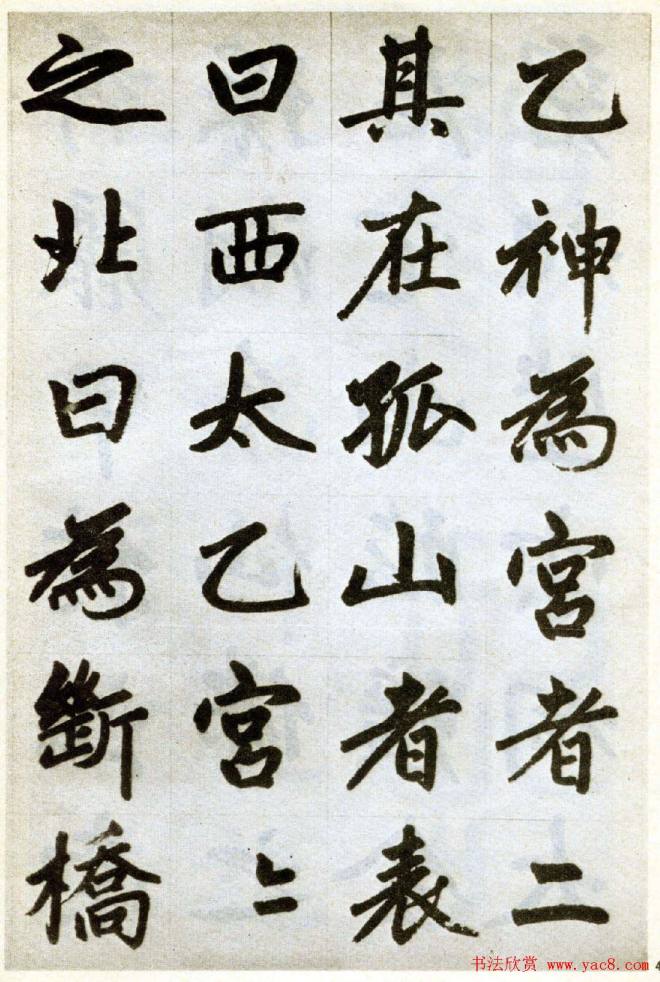 乙神為宮者二
其在孤山者表
曰西太乙宮〻
之北曰為斷橋
书法欣赏 www.yac8.com
4